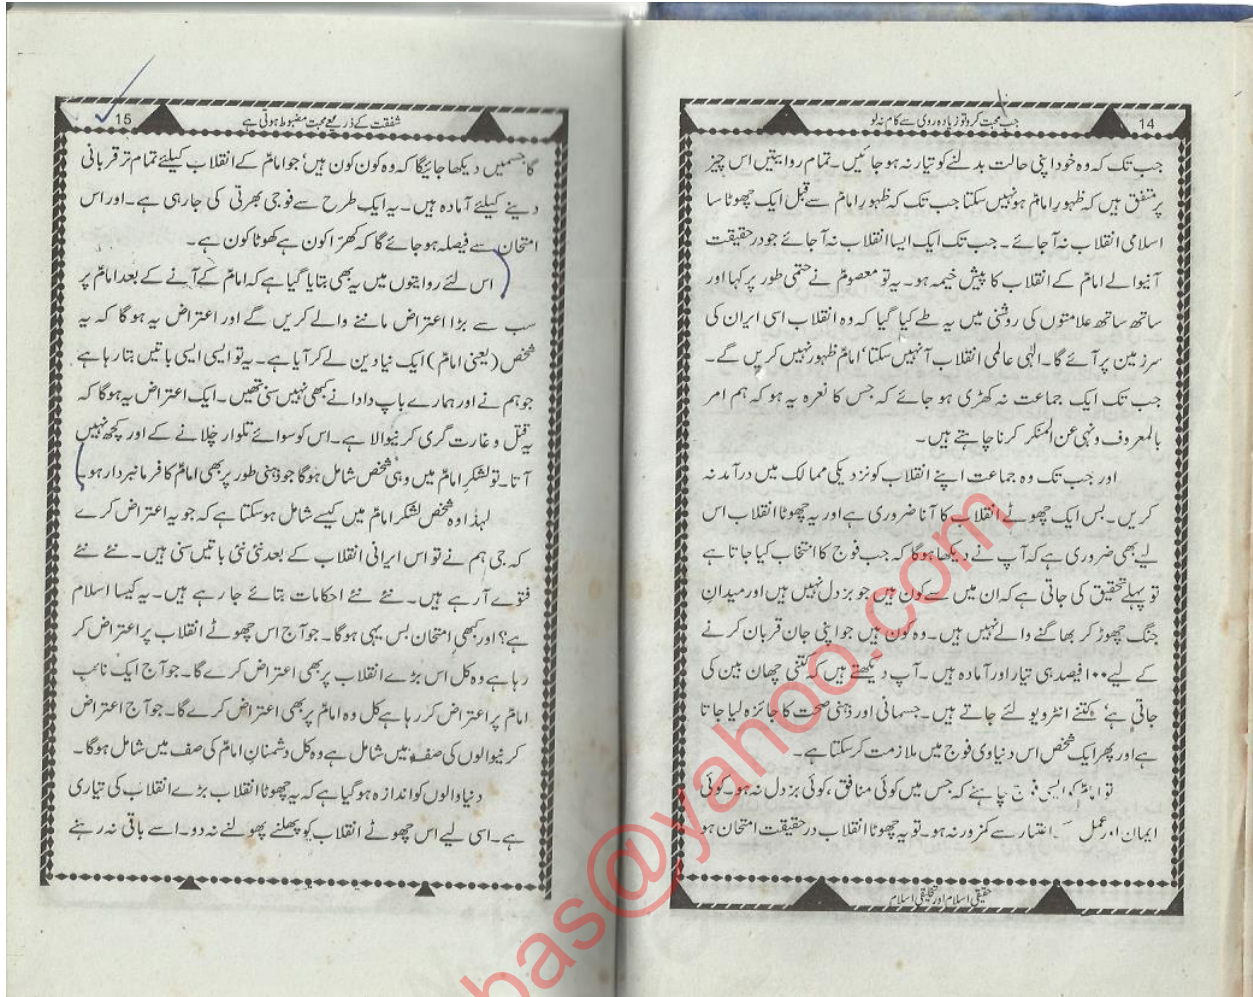 14
جب محبت کرو تو زیادہ روی سے کام نہ لو
جب تک کہ وہ خود اپنی حالت بدلنے کو تیار نہ ہو جائیں۔ تمام روایتیں اس چیز
پر متفق ہیں کہ ظہورِ امامؑ ہو نہیں سکتا جب تک کہ ظہورِ امامؑ سے قبل ایک چھوٹا سا
اسلامی انقلاب نہ آ جائے۔ جب تک ایک ایسا انقلاب نہ آ جائے جو درحقیقت
آنیوالے امامؑ کے انقلاب کا پیش خیمہ ہو۔ یہ تو معصومؑ نے حتمی طور پر کہا اور
ساتھ ساتھ علامتوں کی روشنی میں یہ طے کیا گیا کہ وہ انقلاب اسی ایران کی
سرزمین پر آئے گا۔ الٰہی عالمی انقلاب آ نہیں سکتا‘ امامؑ ظہور نہیں کریں گے۔
جب تک ایک جماعت نہ کھڑی ہو جائے کہ جس کا نعرہ یہ ہو کہ ہم امر
بالمعروف و نہی عن المنکر کرنا چاہتے ہیں۔
اور جب تک وہ جماعت اپنے انقلاب کو نزدیکی ممالک میں درآمد نہ
کریں۔ بس ایک چھوٹے انقلاب کا آنا ضروری ہے اور یہ چھوٹا انقلاب اس
لیے بھی ضروری ہے کہ آپ نے دیکھا ہوگا کہ جب فوج کا انتخاب کیا جاتا ہے
تو پہلے تحقیق کی جاتی ہے کہ ان میں سے کون ہیں جو بزدل نہیں ہیں اور میدانِ
جنگ چھوڑ کر بھاگنے والے نہیں ہیں۔ وہ کون ہیں جو اپنی جان قربان کرنے
کے لیے ۱۰۰ فیصد ہی تیار اور آمادہ ہیں۔ آپ دیکھتے ہیں کہ کتنی چھان بین کی
جاتی ہے‘ کتنے انٹرویو لئے جاتے ہیں۔ جسمانی اور ذہنی صحت کا جائزہ لیا جاتا
ہے اور پھر ایک شخص اس دنیاوی فوج میں ملازمت کرسکتا ہے۔
تو امامؑ کو ایسی فوج چاہئے کہ جس میں کوئی منافق، کوئی بزدل نہ ہو۔ کوئی
ایمان اور عمل کے اعتبار سے کمزور نہ ہو۔ تو یہ چھوٹا انقلاب درحقیقت امتحان ہو
حقیقی اسلام اور تخلیقی اسلام
15
شفقت کے ذریعے محبت مضبوط ہوتی ہے
گا جسمیں دیکھا جائیگا کہ وہ کون کون ہیں‘ جو امامؑ کے انقلاب کیلئے تمام تر قربانی
دینے کیلئے آمادہ ہیں۔ یہ ایک طرح سے فوجی بھرتی کی جارہی ہے۔ اور اس
امتحان سے فیصلہ ہو جائے گا کہ کھرا کون ہے کھوٹا کون ہے۔
اس لئے روایتوں میں یہ بھی بتایا گیا ہے کہ امامؑ کے آنے کے بعد امامؑ پر
سب سے بڑا اعتراض ماننے والے کریں گے اور اعتراض یہ ہوگا کہ یہ
شخص (یعنی امامؑ) ایک نیا دین لے کر آیا ہے۔ یہ تو ایسی ایسی باتیں بتا رہا ہے
جو ہم نے اور ہمارے باپ دادا نے کبھی نہیں سنی تھیں۔ ایک اعتراض یہ ہوگا کہ
یہ قتل و غارت گری کرنیوالا ہے۔ اس کو سوائے تلوار چلانے کے اور کچھ نہیں
آتا۔ تو لشکرِ امامؑ میں وہی شخص شامل ہوگا جو ذہنی طور پر بھی امامؑ کا فرمانبردار ہو۔
لہٰذا وہ شخص لشکرِ امامؑ میں کیسے شامل ہوسکتا ہے کہ جو یہ اعتراض کرے
کہ جی ہم نے تو اس ایرانی انقلاب کے بعد نئی نئی باتیں سنی ہیں۔ نئے نئے
فتوے آ رہے ہیں۔ نئے نئے احکامات بتائے جا رہے ہیں۔ یہ کیسا اسلام
ہے؟ اور کبھی امتحان بس یہی ہوگا۔ جو آج اس چھوٹے انقلاب پر اعتراض کر
رہا ہے وہ کل اس بڑے انقلاب پر بھی اعتراض کرے گا۔ جو آج ایک نائب
امامؑ پر اعتراض کر رہا ہے کل وہ امامؑ پر بھی اعتراض کرے گا۔ جو آج اعتراض
کرنیوالوں کی صف میں شامل ہے وہ کل دشمنانِ امامؑ کی صف میں شامل ہوگا۔
دنیا والوں کو اندازہ ہو گیا ہے کہ یہ چھوٹا انقلاب بڑے انقلاب کی تیاری
ہے۔ اسی لیے اس چھوٹے انقلاب کو پھلنے پھولنے نہ دو۔ اسے باقی نہ رہنے
bas@yahoo.com